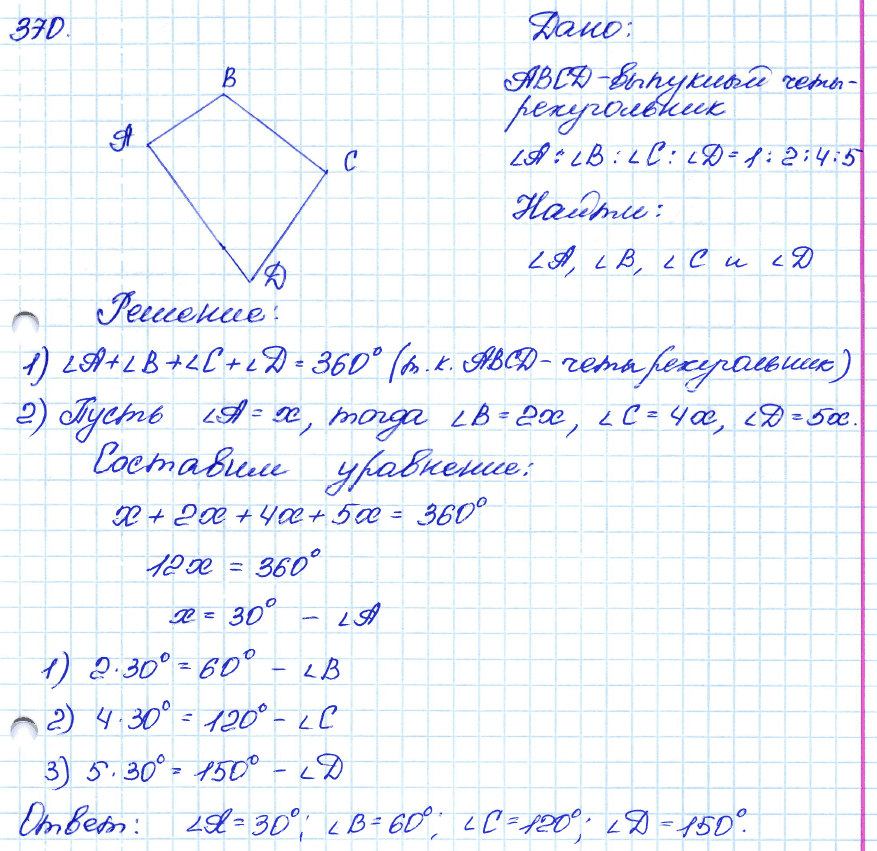 370.
B
A
C
D
Дано:
ABCD - выпуклый четы-
рехугольник
∠A : ∠B : ∠C : ∠D = 1 : 2 : 4 : 5
Найти:
∠A, ∠B, ∠C и ∠D
Решение:
1) ∠A + ∠B + ∠C + ∠D = 360° (т.к. ABCD - четырехугольник)
2) Пусть ∠A = x, тогда ∠B = 2x, ∠C = 4x, ∠D = 5x.
Составим уравнение:
x + 2x + 4x + 5x = 360°
12x = 360°
x = 30° - ∠A
1) 2·30° = 60° - ∠B
2) 4·30° = 120° - ∠C
3) 5·30° = 150° - ∠D
Ответ: ∠A = 30°; ∠B = 60°; ∠C = 120°; ∠D = 150°.